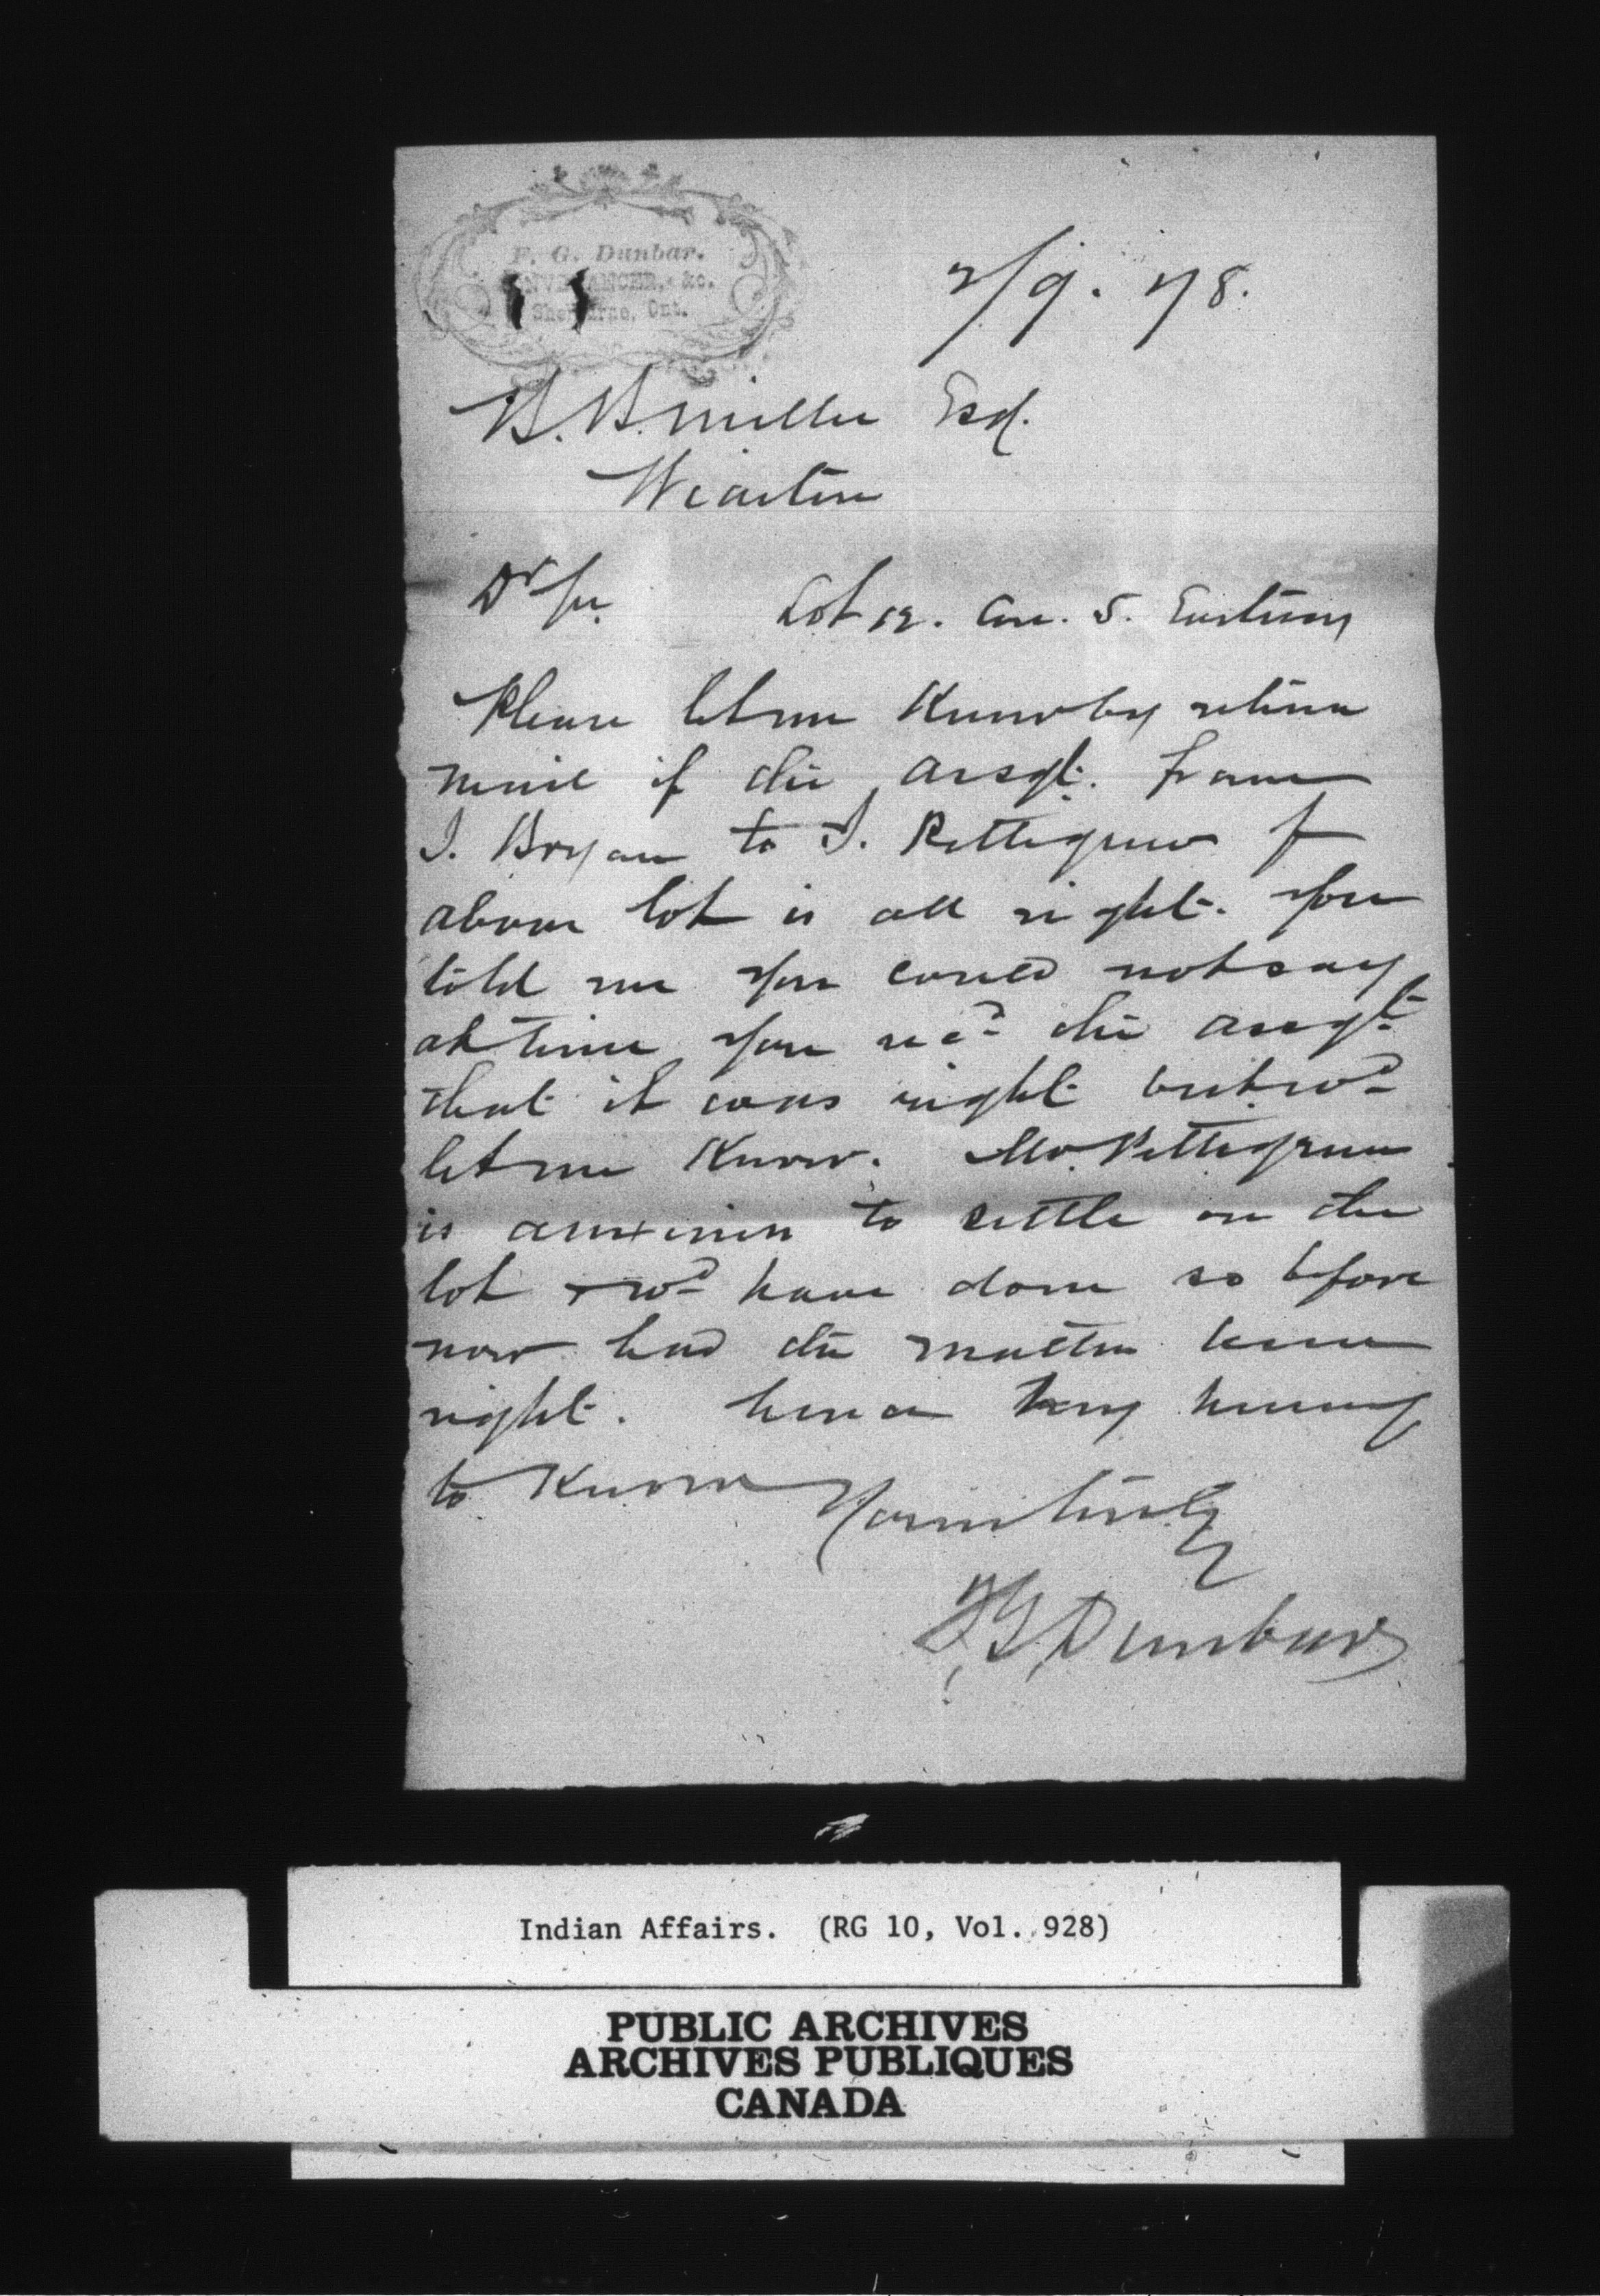 F. G. Dunbar.
CONVEYANCER, &c.
Shelburne, Ont.
2/9. 78.
B. B. Miller Esq.
Wiarton
Dr Sir. Lot 12. Con. 5. Eastnor
Please let me Know by return
mail if the assgt. from
J. Bryan to J. Pettigrew for
above lot is all right. You
told me you could not say
at time you recd the assgt
that it was right but wd
let me Know. Mr. Pettigrew
is anxious to settle on the
lot & wd have done so before
now had the matter been
right. hence
to Know Yours truly
F G Dunbar
Indian Affairs. (RG 10, Vol. 928)
PUBLIC ARCHIVES
ARCHIVES PUBLIQUES
CANADA